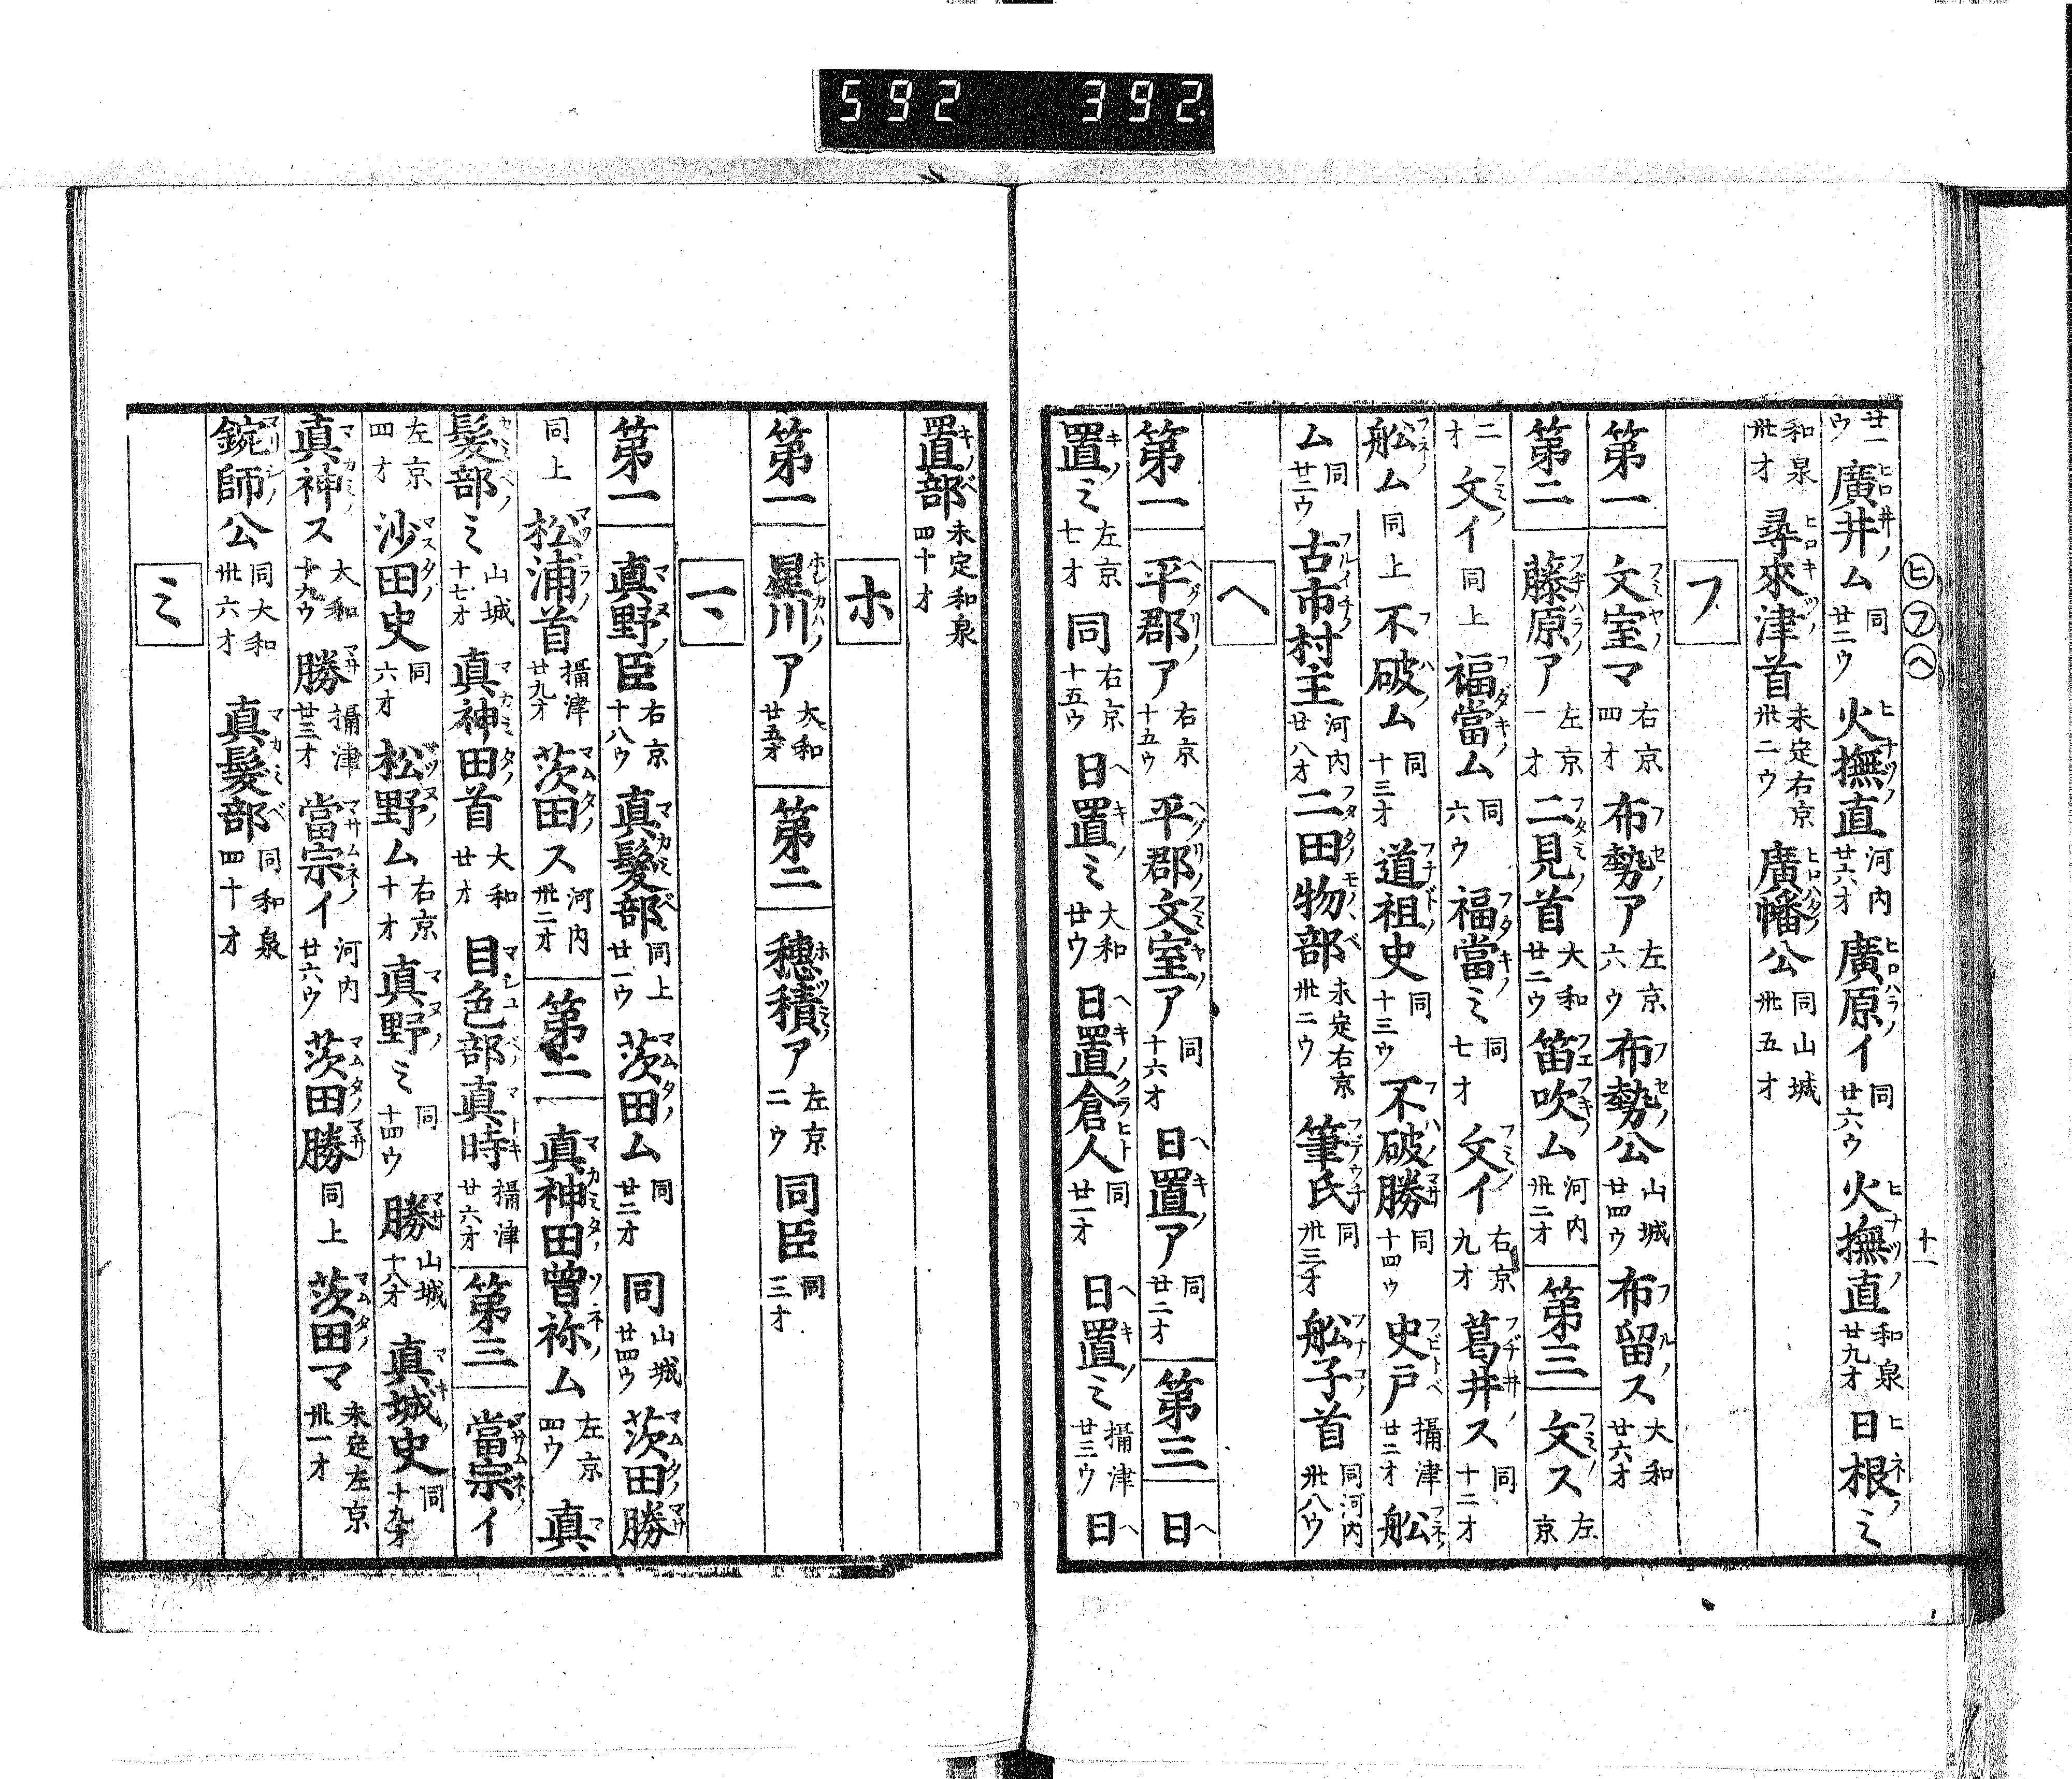 592 392.
㋪㋫㋬ 十一
廿一ウ 廣井ム 同廿二ウ 火撫直 河内廿六オ 廣原イ 同廿六ウ 火撫直 和泉廿九オ 日根ミ
和泉卅オ 尋來津首 未定右京卅二ウ 廣幡公 同山城卅五オ
フ
第一 文室マ 右京四オ 布勢ア 左京六ウ 布勢公 山城廿四ウ 布留ス 大和廿六オ
第二 藤原ア 左京一オ 二見首 大和廿二ウ 笛吹ム 河内卅二オ 第三 文ス 左京
二オ 文イ 同上 福當ム 同六ウ 福當ミ 同七オ 文イ 右京九オ 葛井ス 同十二オ
舩ム 同上 不破ム 同十三オ 道祖史 同十三ウ 不破勝 同十四ウ 史戸 攝津廿二オ 舩
ム 同廿二ウ 古市村主 河内廿八オ 二田物部 未定右京卅二ウ 筆氏 同卅三オ 舩子首 同河内卅八ウ
ヘ
第一 平郡ア 右京十五ウ 平郡文室ア 同十六オ 日置ア 同廿二オ 第三 日
置ミ 左京七オ 同 右京十五ウ 日置ミ 大和廿ウ 日置倉人 同廿一オ 日置ミ 攝津廿三ウ 日
置部 未定和泉四十オ
ホ
第一 星川ア 大和廿五オ 第二 穂積ア 左京二ウ 同臣 同三オ
マ
第一 真野臣 右京十八ウ 真髪部 同上廿一ウ 茨田ム 同廿二オ 同 山城廿四ウ 茨田勝
同上 松浦首 攝津廿九オ 茨田ス 河内卅二オ 第二 真神田曽祢ム 左京四ウ 真
髪部ミ 山城十七オ 真神田首 大和廿オ 目色部真時 攝津廿六オ 第三 當宗イ
左京四オ 沙田史 同六オ 松野ム 右京十オ 真野ミ 同十四ウ 勝 山城十八オ 真城史 同十九オ
真神ス 大和十九ウ 勝 攝津廿三オ 當宗イ 河内廿六ウ 茨田勝 同上 茨田マ 未定左京卅一オ
鋺師公 同大和卅六オ 真髪部 同和泉四十オ
ミ